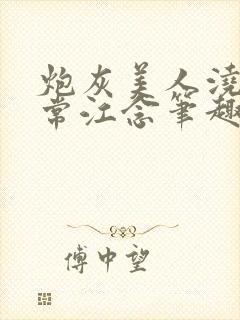 炮灰美人浇
常江念笔趣
傅中望